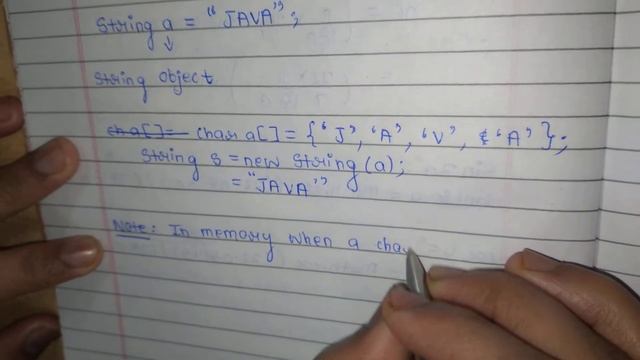 String a = "JAVA";
String object
cha[]= char a[] = {'J', 'A', 'V', & 'A'};
String s = new String(a);
= "JAVA"
Note: In memory when a cha